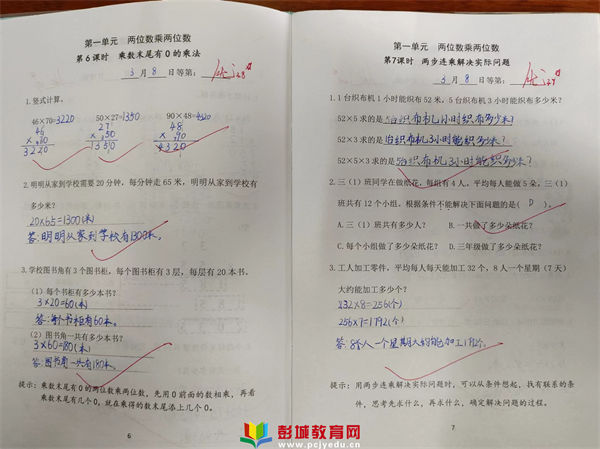 第一单元 两位数乘两位数
第6课时 乘数末尾有0的乘法
3月8日等第：
1.竖式计算。
46×70=3220 50×27=1350 90×48=4320
46 27 48
×.70 ×.50 ×.90
3220 1350 4320
2.明明从家到学校需要20分钟，每分钟走65米，明明从家到学校有
多少米？
20×65=1300(米)
答：明明从家到学校有1300米。
3.学校图书角有3个图书柜，每个图书柜有3层，每层有20本书。
（1）每个图书柜有多少本书？
3×20=60(本)
答：每个书柜有60本。
（2）图书角一共有多少本书？
3×60=180(本)
答：图书角一共有180本。
提示：乘数末尾有0的两位数乘两位数，先用0前面的数相乘，再看
乘数末尾有几个0，就在乘得的数末尾添上几个0。
6
第一单元 两位数乘两位数
第7课时 两步连乘解决实际问题
3月8日等第：
1.1台织布机1小时能织布52米，5台织布机3小时能织布多少米？
52×5求的是5台织布机1小时能织布多少米？
52×3求的是1台织布机3小时能织布多少米？
52×5×3求的是5台织布机3小时能织布多少米？
2.三（1）班同学在做纸花，每组有4人，平均每人能做5朵，三（1）
班共有12个小组。根据条件不能解决下面问题的是（ D ）。
A.三（1）班共有多少人？ B.一共做了多少朵纸花？
C.每个小组做了多少朵纸花？ D.三年级做了多少朵纸花？
3.工人加工零件，平均每人每天能加工32个，8人一个星期（7天）
大约能加工多少个？
32×8=256(个)
256×7=1792(个)
答：8人一个星期大约能加工1792个。
提示：用两步连乘解决实际问题时，可以从条件想起，找有联系的条
件，思考先求什么，再求什么，确定解决问题的过程。
7
彭城教育网
www.pcjyedu.cn